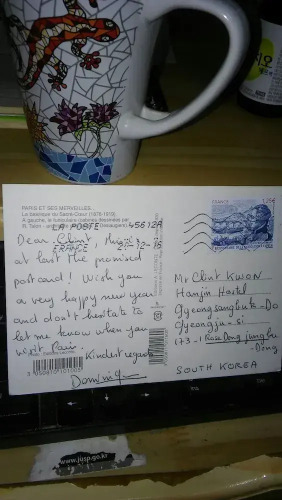 PARIS ET SES MERVEILLES...
La basilique du Sacré-Cœur (1876-1919)
LA POSTE 45612A
FRANCE 21-12-15
FRANCE
Dear Clint, this is
at last the promised
postcard! Wish you
a very happy new year
and don't hesitate to
let me know when you
visit Paris.
Kindest regards
Dominique
Mr Clint KWON
Hanjin Hostel
Gyeongsangbuk-Do
Gyeongju-Si
173-1
Dong
SOUTH KOREA
www.jusp.go.kr